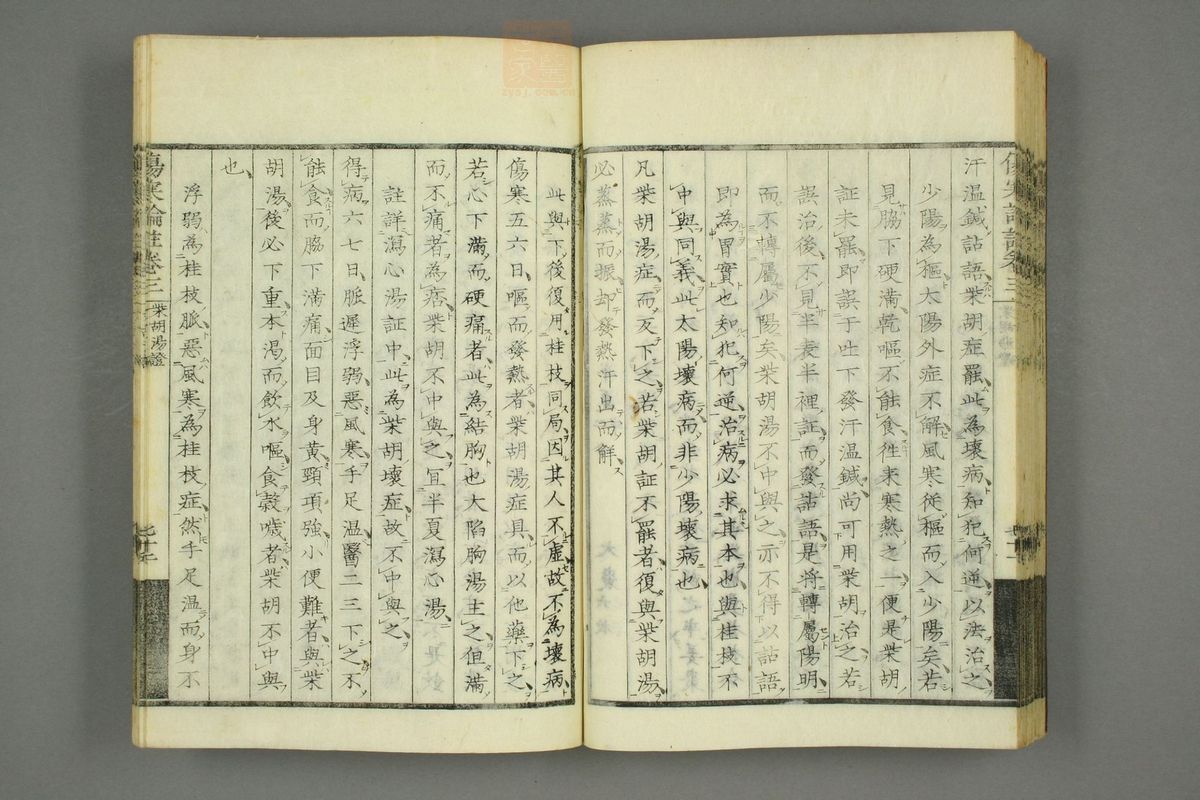 汗温鍼詁語柴胡症罷此為壞病知犯何逆以法治之
少陽為樞太陽外症不解風寒從樞而入少陽矣若
見脇下硬滿乾嘔不能食徃来寒熱之一便是柴胡
証未罷即誤于吐下發汗温鍼尚可用柴胡治之若
誤治後不見半表半裡証而發詁語是將轉屬陽明
而不轉屬少陽矣柴胡湯不中與之亦不得以詁語
即為胃實也知犯何逆治病必求其本也與桂枝不
中與同義此太陽壞病而非少陽壞病也
凡柴胡湯症而反下之若柴胡証不罷者復與柴胡湯
必蒸蒸而振却發熱汗出而解
此與下後復用桂枝同局因其人不虛故不為壞病
傷寒五六日嘔而發熱者柴胡湯症具而以他藥下之
若心下滿而硬痛者此為結胸也大陷胸湯主之但滿
而不痛者為痞柴胡不中與之宜半夏瀉心湯
註詳瀉心湯証中此為柴胡壞症故不中與之
得病六七日脈遲浮弱惡風寒手足温醫二三下之不
能食而脇下滿痛面目及身黄頸項強小便難者與柴
胡湯後必下重本渴而飲水嘔食穀噦者柴胡不中與
也
浮弱為桂枝脈惡風寒為桂枝症然手足温而身不
傷寒論註卷三
柴胡湯證